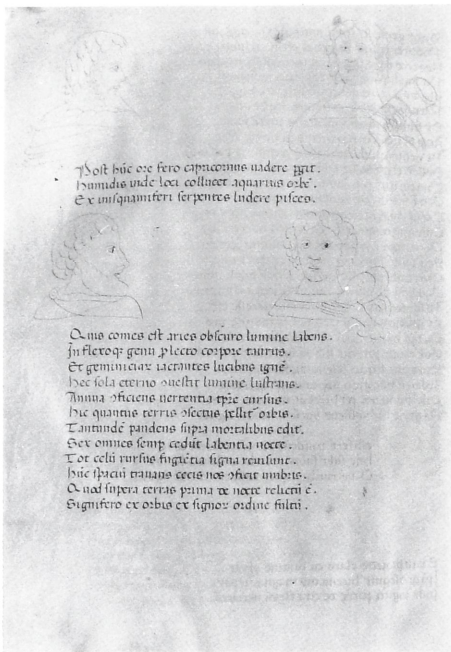 Post hũc ore fero capricornus uadere pgit.
Humidis inde loci collucet aquarius orbẽ.
Ex inisquamiferi serpentes ludere pisces.
Quis comes est aries obscuro lumine labens.
Inflexoq; genu plecto corpore taurus.
Et gemini clar iactantes lucibus ignẽ.
Hec sola eterno lumine lustrans.
Annua oficiens uertentia tpre cursus.
Hic quantus terris osectus pellit orbis.
Tantundẽ pandens supra mortalibus edit.
Sex omnes semp cedũt labentia nocte.
Tot celũ rursus fugiẽtia signa reuisunt.
Hũc spaciũ tranans cecis nos oficit umbris.
Quod supera terras prima de nocte relictũ ẽ.
Signifero ex orbis ex signor ordine fultũ.